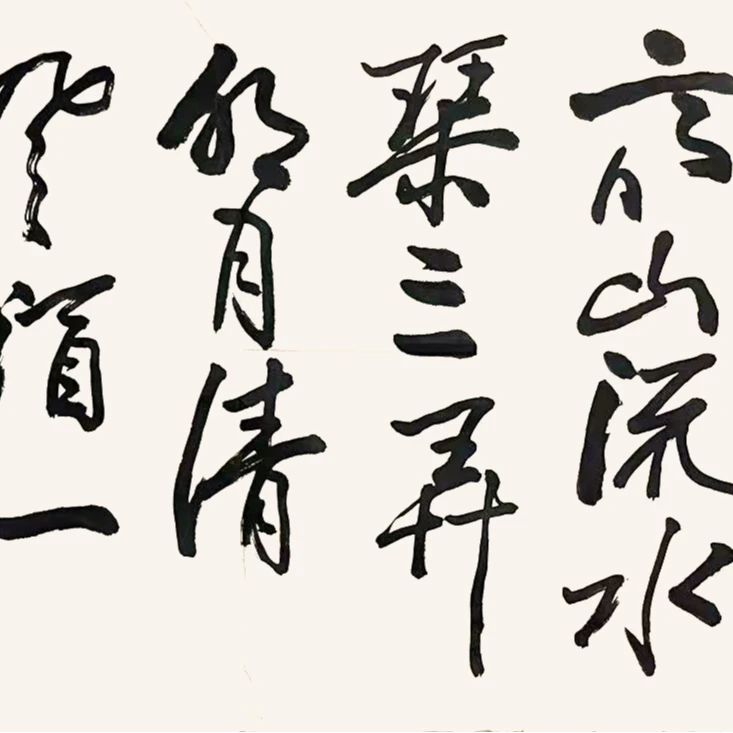 高山流水
琴三弄
明月清
风酒一